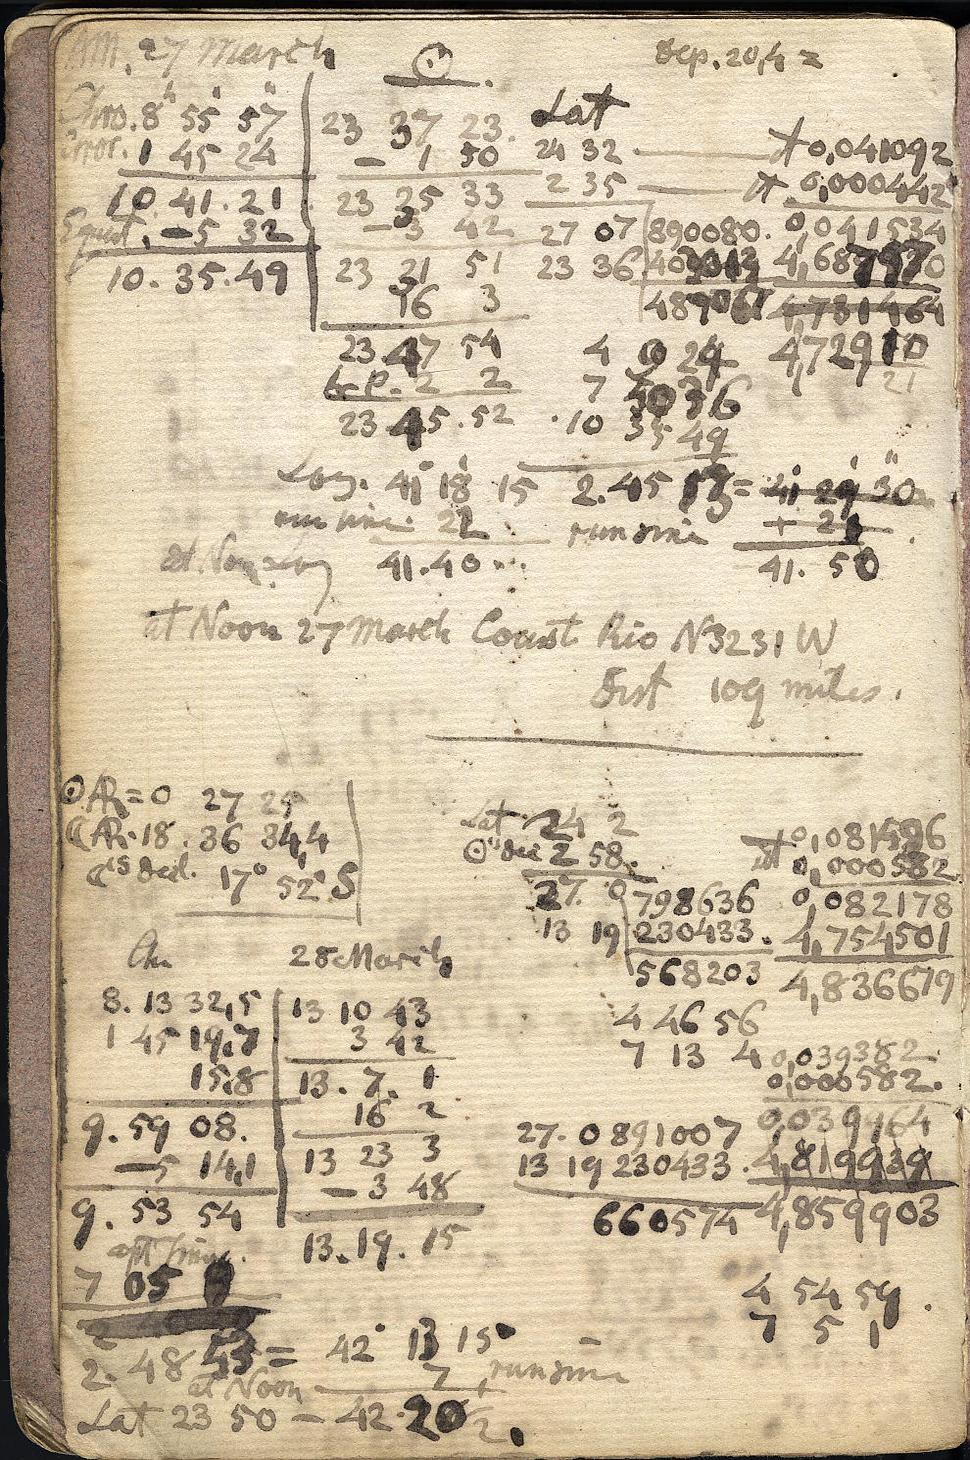 AM. 27 March
☉
Dep. 20,4 =
Chro. 8h 55' 57"
Error. 1 45 24
10. 41. 21
Equat. -5 32
10. 35. 49
23 37 23.
- 1 50
23 35 33
-3 42
23 21 51
16 3
23 37 54
2 2
23 45. 52
Lat
24 32
2 35
27 07 890080.
23 36
0,041092
0,000442
0,041534
4,781464
4 10 24
7
10 35 49
Long. 41° 18' 15
2. 45 = 41 29 30
run since 22
run since
at Noon Long 41. 40
41. 50
at Noon 27 March Coast Rio N 32 31 W
Dist 109 miles.
☉ AR = 0 27 25
☾ AR. 18. 36 34,4
☾'s Decl. 17° 52' S
Lat 24 2
☉'s Dec 2 58.
27. 0 798636
13 19 230433.
568203
0,000582
0,082178
4,754501
4,836679
4 46 56
7 13 4
28 March
8. 13 32,5
1 45 19,7
15,8
9. 59 08.
-5 14,1
9. 53 54
apt time.
7 05
13 10 43
3 42
13. 7. 1
16 2
13 23 3
- 3 48
13. 19. 15
0,039382
0,000582.
27. 0 891007 0,039964
13 19 230433. 4,819939
660574 4,859903
4 54 59
7 5 1
2. 48 53 = 42° 13 15"
at Noon 7 run since
Lat 23 50 - 42. 20 1/2.